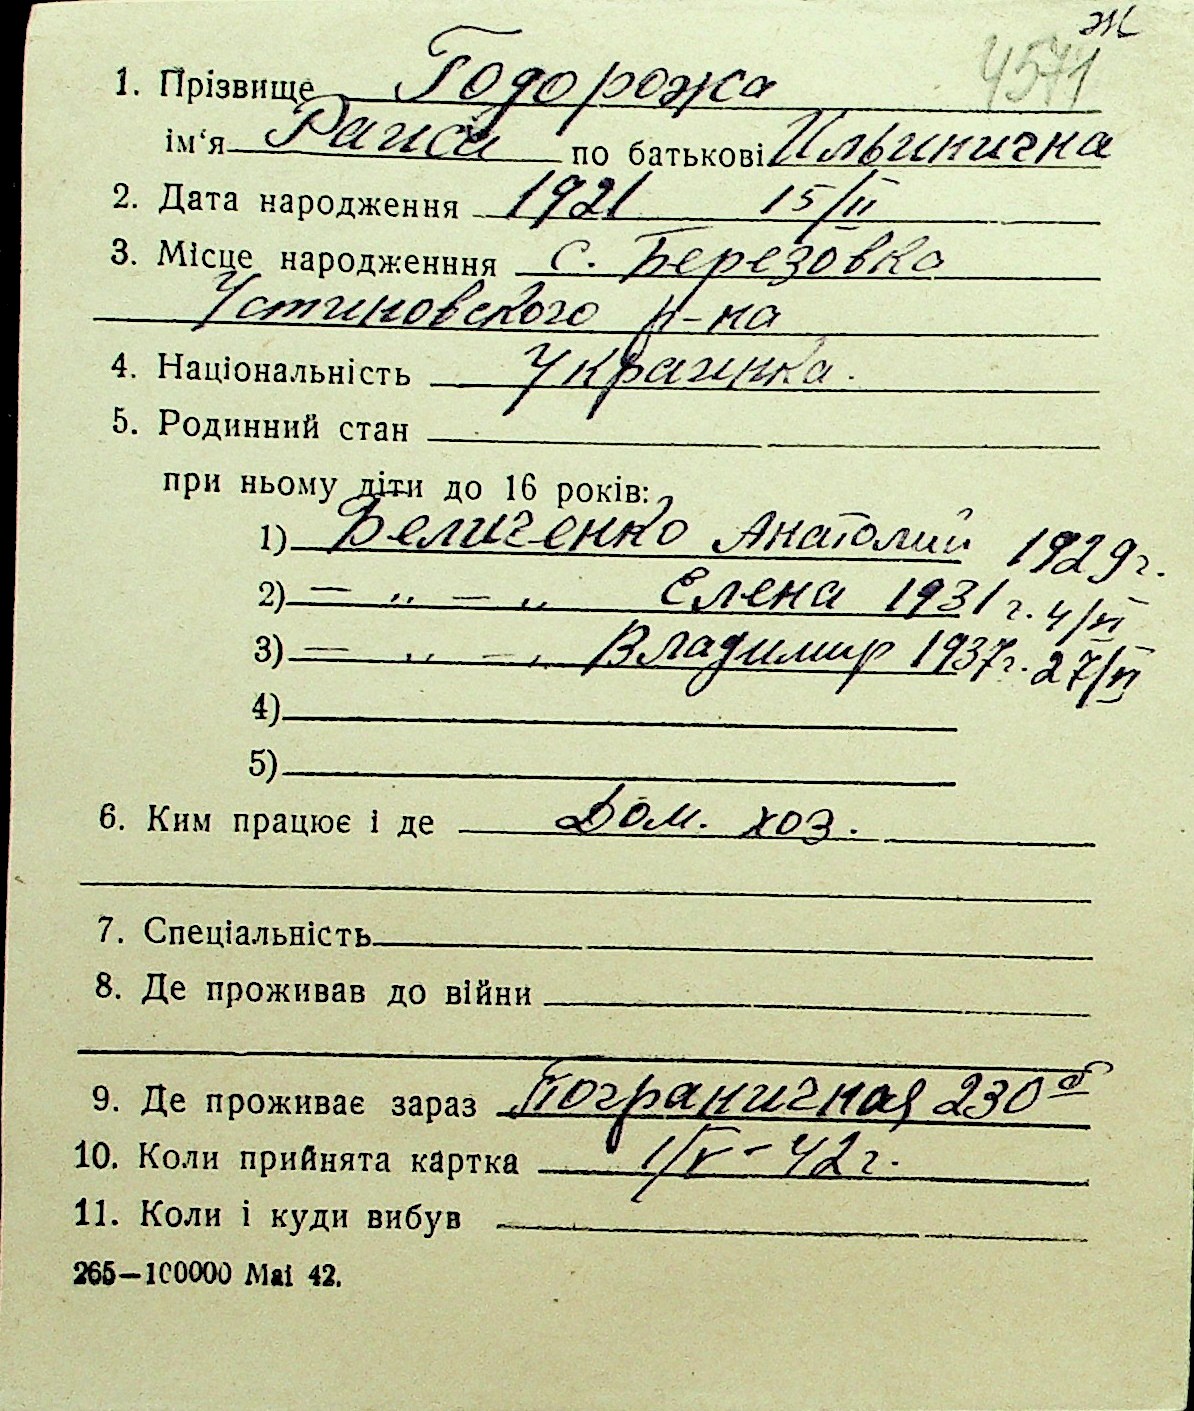 ж
4571
1. Прізвище Годорожа
ім'я Раиса по батькові Ильинична
2. Дата народження 1921 15/II
3. Місце народженння с. Березовка
Устиновского р-на
4. Національність Украинка.
5. Родинний стан
при ньому діти до 16 років:
1) Беличенко Анатолий 1929г.
2) — „ — „ Елена 1931г. 4/VI
3) — „ — „ Владимир 1937г. 27/VI
4)
5)
6. Ким працює і де Дом. хоз.
7. Спеціальність
8. Де проживав до війни
9. Де проживає зараз Пограничная 230а
10. Коли прийнята картка 1/V - 42г.
11. Коли і куди вибув
265—100000 Mai 42.